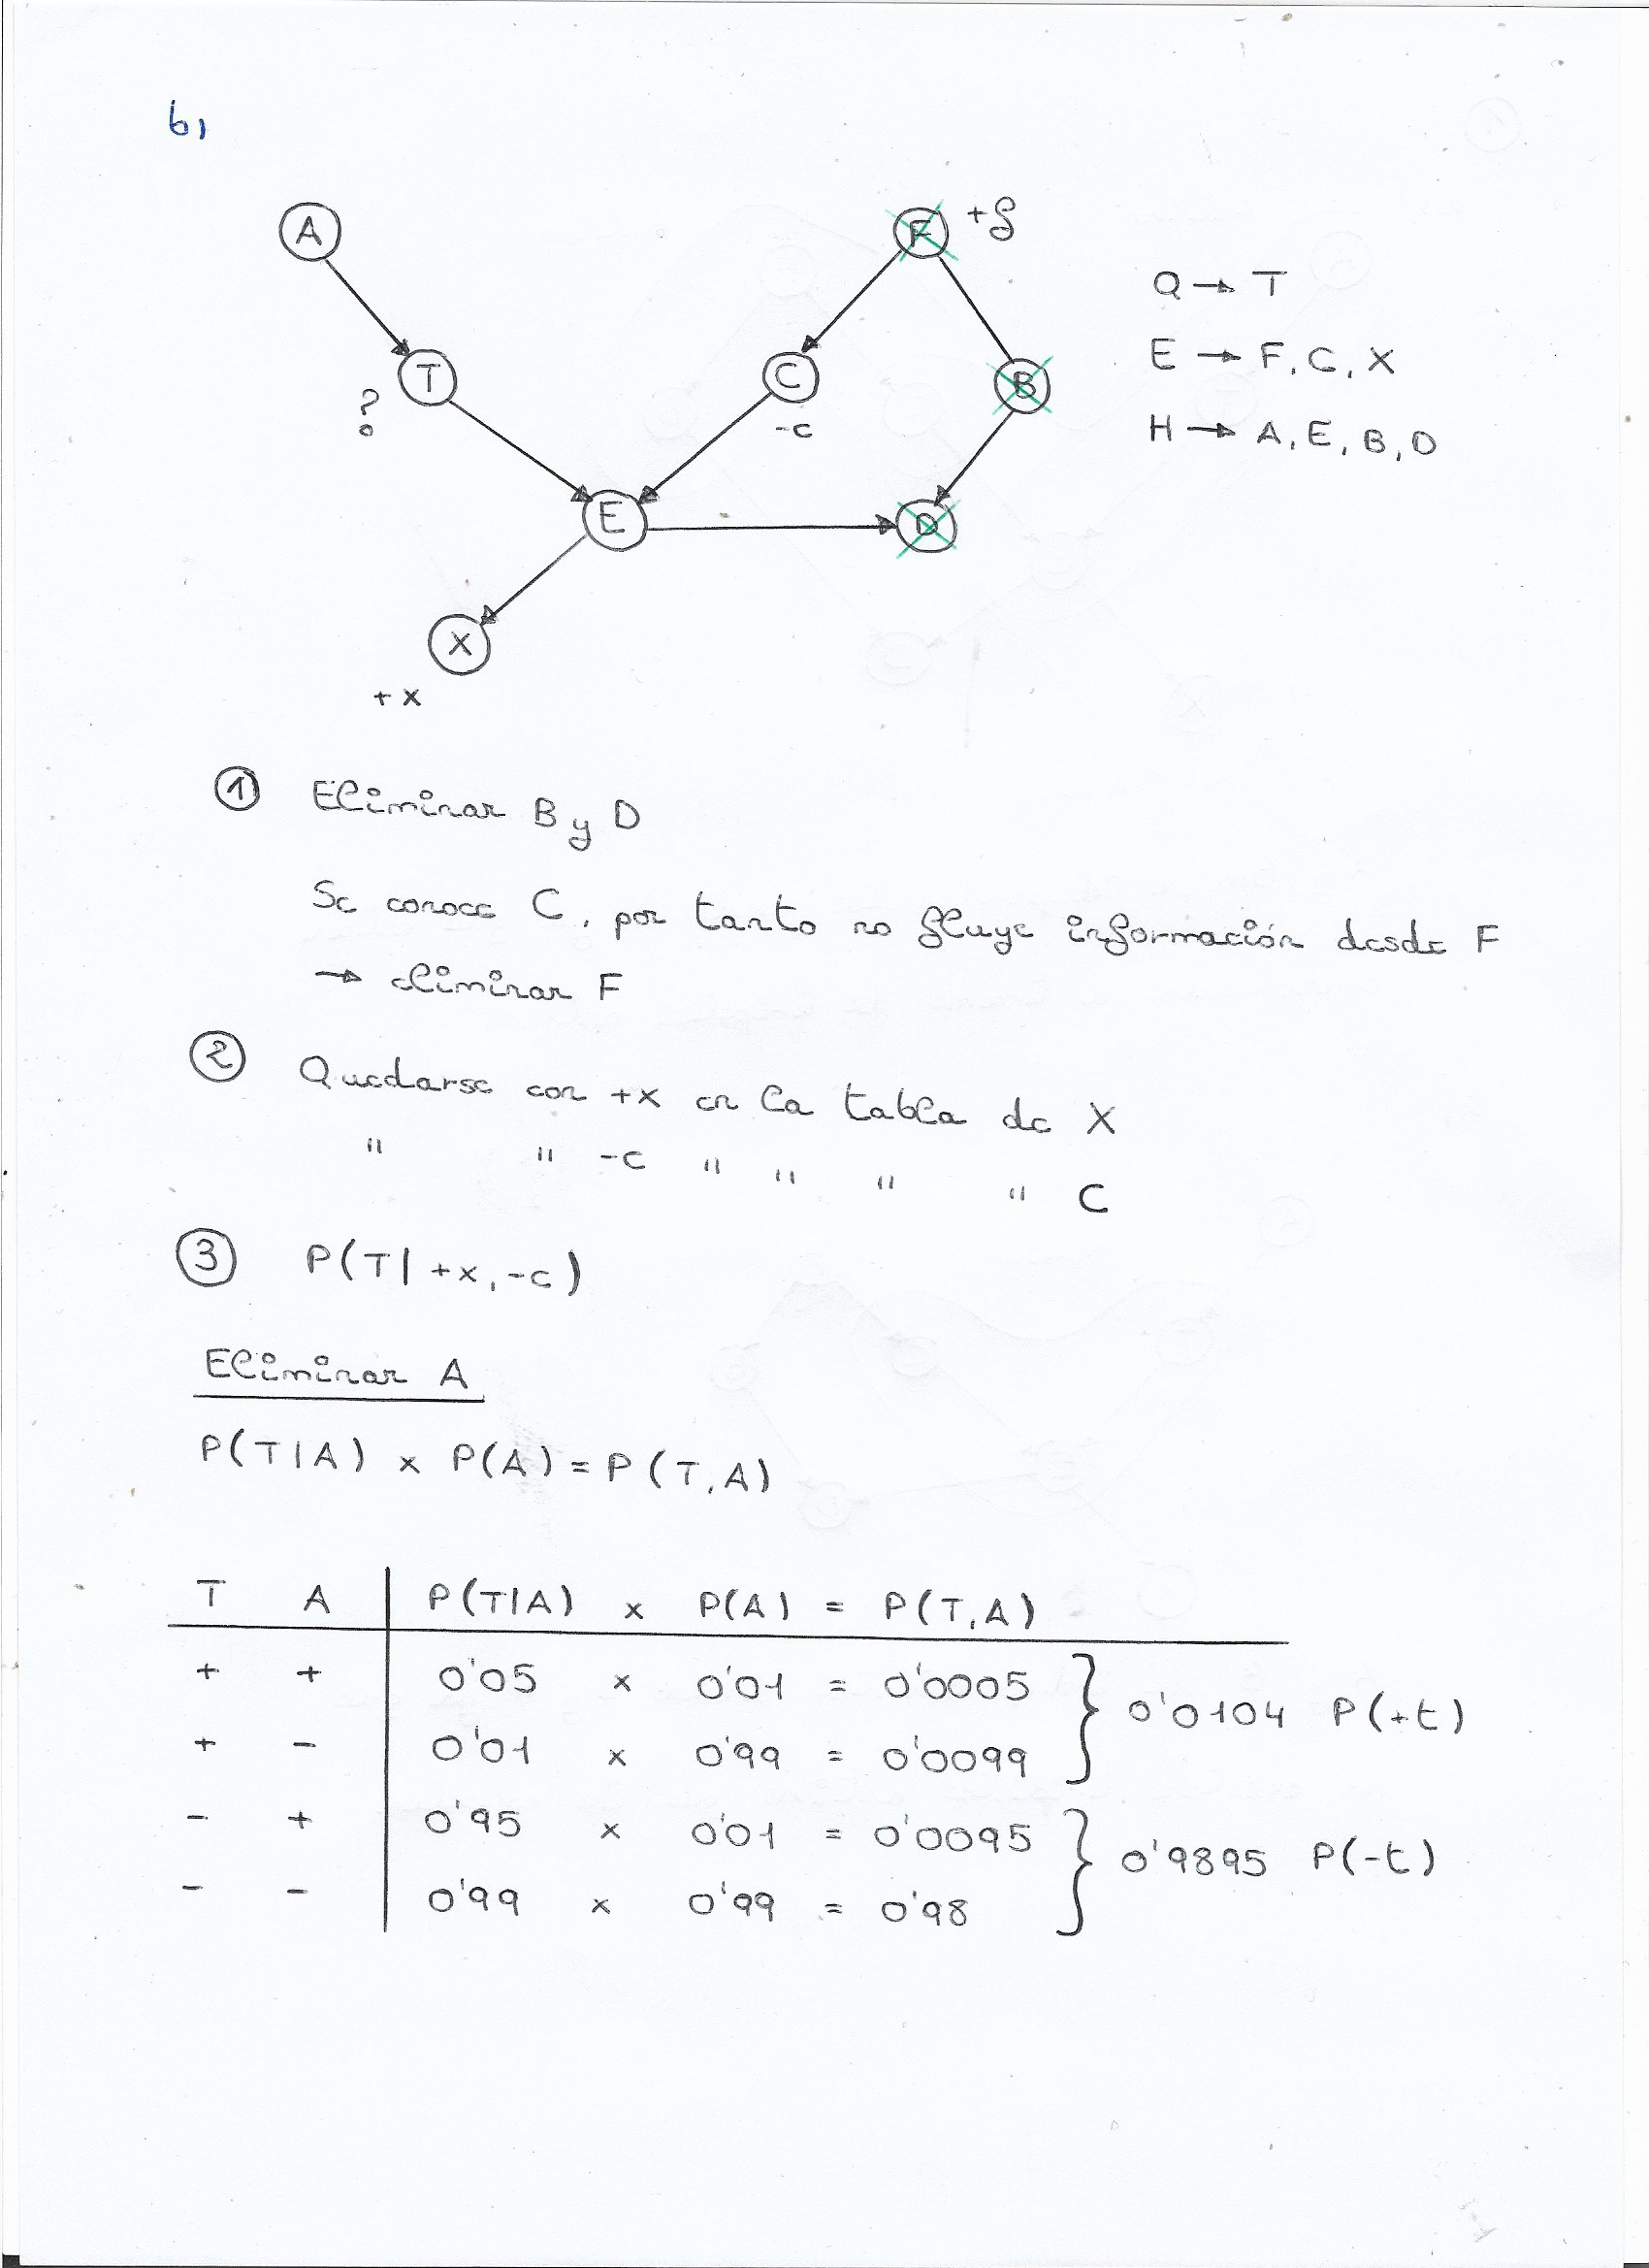 b)
A
F
+f
Q → T
T
?
C
-c
B
E → F, C, X
H → A, E, B, D
E
D
X
+x
① Eliminar B y D
Se conoce C, por tanto no fluye información desde F
→ eliminar F
② Quedarse con +x en la tabla de X
" " -c " " " " C
③ P(T| +x, -c)
Eliminar A
P(T|A) x P(A) = P(T,A)
T A P(T|A) x P(A) = P(T,A)
+ + 0'05 x 0'01 = 0'0005 } 0'0104 P(+t)
+ - 0'01 x 0'99 = 0'0099
- + 0'95 x 0'01 = 0'0095 } 0'9895 P(-t)
- - 0'99 x 0'99 = 0'98